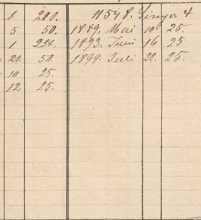 1 200. N 548. Singer 4
5 50. 1889. Mai 10 25.
1 225. 1893. Juni 16 25
21. 50. 1899. Juli 21. 25.
10. 25.
12. 25.